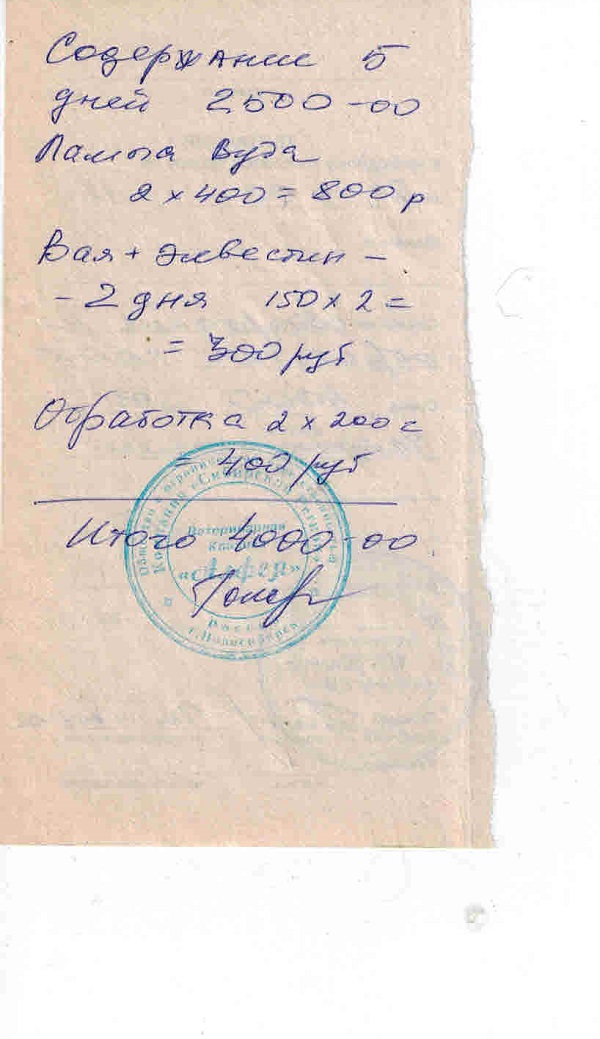 Содержание 5
дней 2500-00
Лампа Вуда
2 x 400 = 800 р
Вая + Элвестин -
- 2 дня 150 x 2 =
= 300 руб
Обработка 2 x 200 =
= 400 руб
Итого 4000-00.
Компания «Сибирский
Ветеринарная
Клиника
«Алфея»
Россия
г. Новосибирск